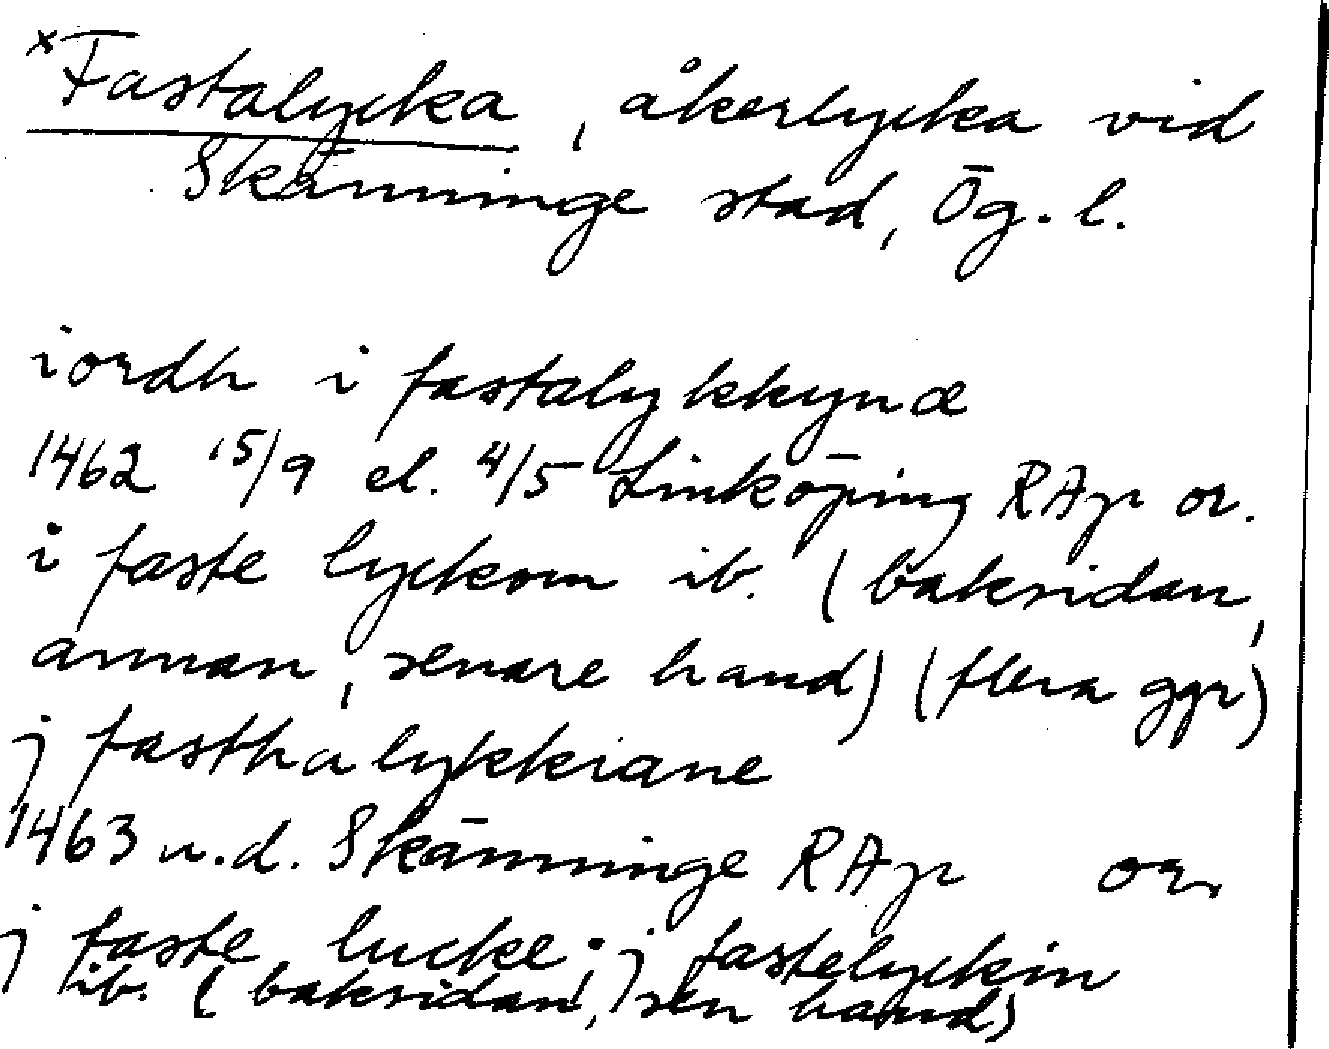 *Fastalycka, åkerlycka vid
Skänninge stad, Ög. l.
iordh i fastalykkynæ
1462 15/9 el. 4/5 Linköping RAp or.
i faste lyckom ib. (baksidan,
annan, senare hand) (flera ggr)
j fasthalykkiane
1463 u.d. Skänninge RAp or.
j faste lucke; j fastelyckin
ib. (baksidan, sen hand)